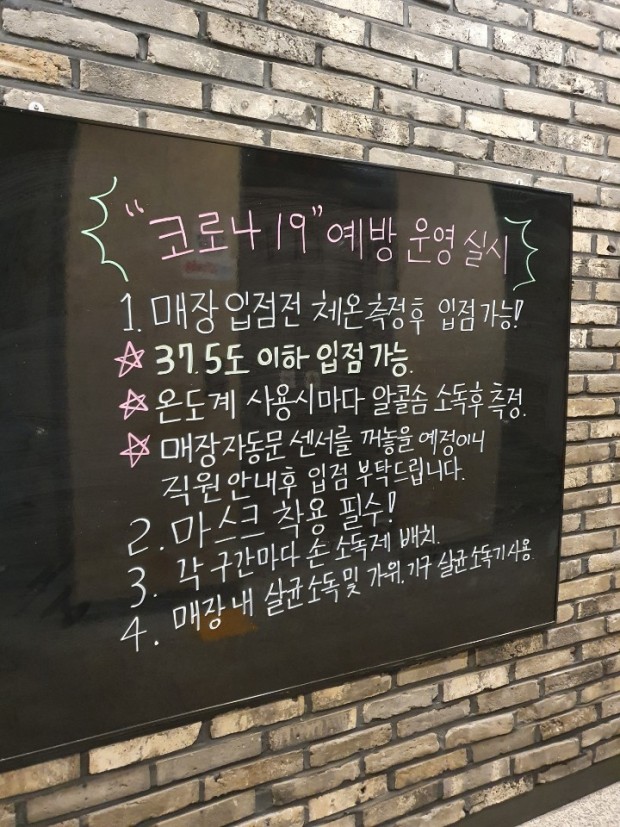 "코로나 19" 예방 운영 실시
1. 매장 입점전 체온측정후 입점가능!
☆ 37.5도 이하 입점 가능.
☆ 온도계 사용시마다 알콜솜 소독후 측정.
☆ 매장자동문 센서를 꺼놓을 예정이니
직원 안내후 입점 부탁드립니다.
2. 마스크 착용 필수!
3. 각 구간마다 손 소독제 배치.
4. 매장 내 살균소독 및 가위.기구 살균소독기사용.